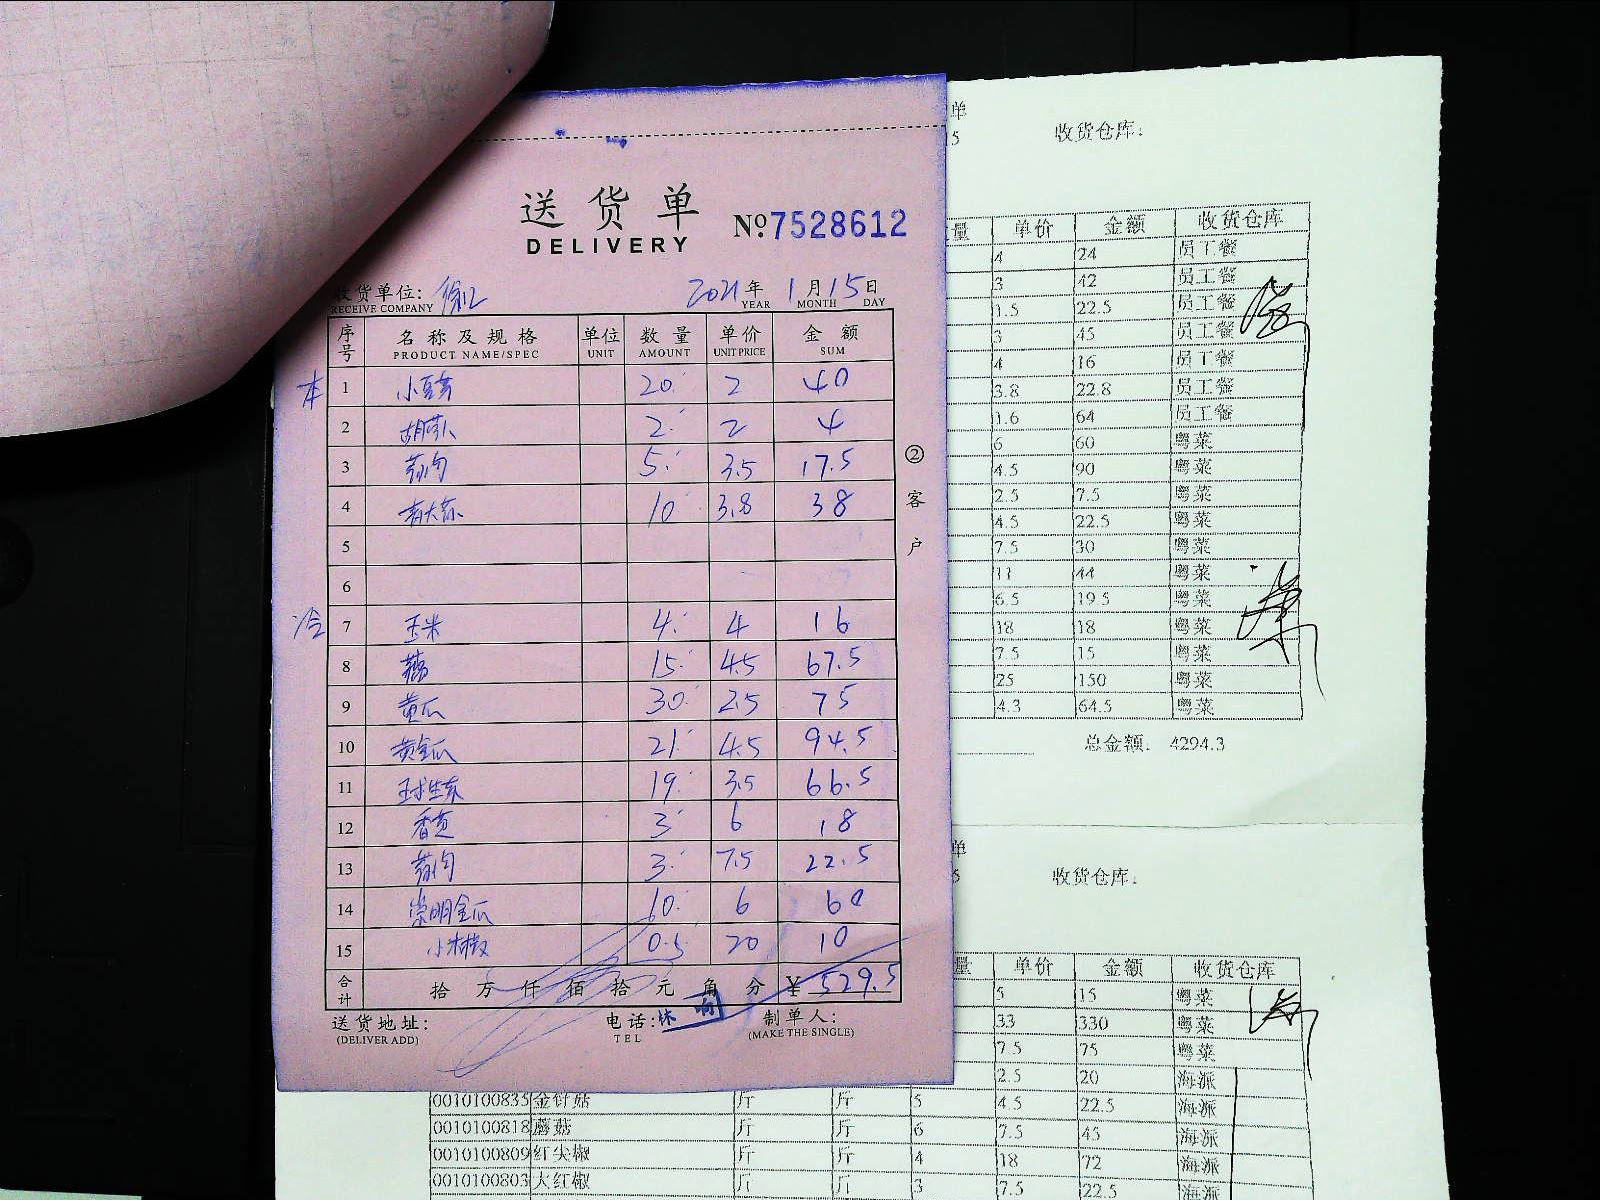 送货单
DELIVERY
№7528612
收货单位: 徐汇
RECEIVE COMPANY
2021年 1月15日
YEAR MONTH DAY
序号 名称及规格 单位 数量 单价 金额
PRODUCT NAME/SPEC UNIT AMOUNT UNIT PRICE SUM
本 1 20 2 40
2 胡萝卜 2 2 4
3 5 3.5 17.5
4 10 3.8 38
5
6
冷 7 玉米 4 4 16
8 15 4.5 67.5
9 黄瓜 30 2.5 75
10 黄金瓜 21 4.5 94.5
11 球生菜 19 3.5 66.5
12 香芹 3 6 18
13 3 7.5 22.5
14 崇明金瓜 10 6 60
15 小米椒 0.5 20 10
合计 拾 万 仟 佰 拾 元 角 分 ¥ 529.5
送货地址: 电话: 制单人:
(DELIVER ADD) TEL (MAKE THE SINGLE)
②客户
单
5 收货仓库:
量 单价 金额 收货仓库
4 24 员工餐
3 42 员工餐
1.5 22.5 员工餐
3 45 员工餐
4 16 员工餐
3.8 22.8 员工餐
1.6 64 员工餐
6 60 粤菜
4.5 90 粤菜
2.5 7.5 粤菜
4.5 22.5 粤菜
7.5 30 粤菜
11 44 粤菜
6.5 19.5 粤菜
18 18 粤菜
7.5 15 粤菜
25 150 粤菜
4.3 64.5 粤菜
总金额: 4294.3
单
5 收货仓库:
量 单价 金额 收货仓库
5 15 粤菜
33 330 粤菜
7.5 75 粤菜
2.5 20 海派
0010100835 金针菇 斤 斤 5 4.5 22.5 海派
0010100818 蘑菇 斤 斤 6 7.5 45 海派
0010100809 红尖椒 斤 斤 4 18 72 海派
0010100803 大红椒 斤 斤 3 7.5 22.5 海派